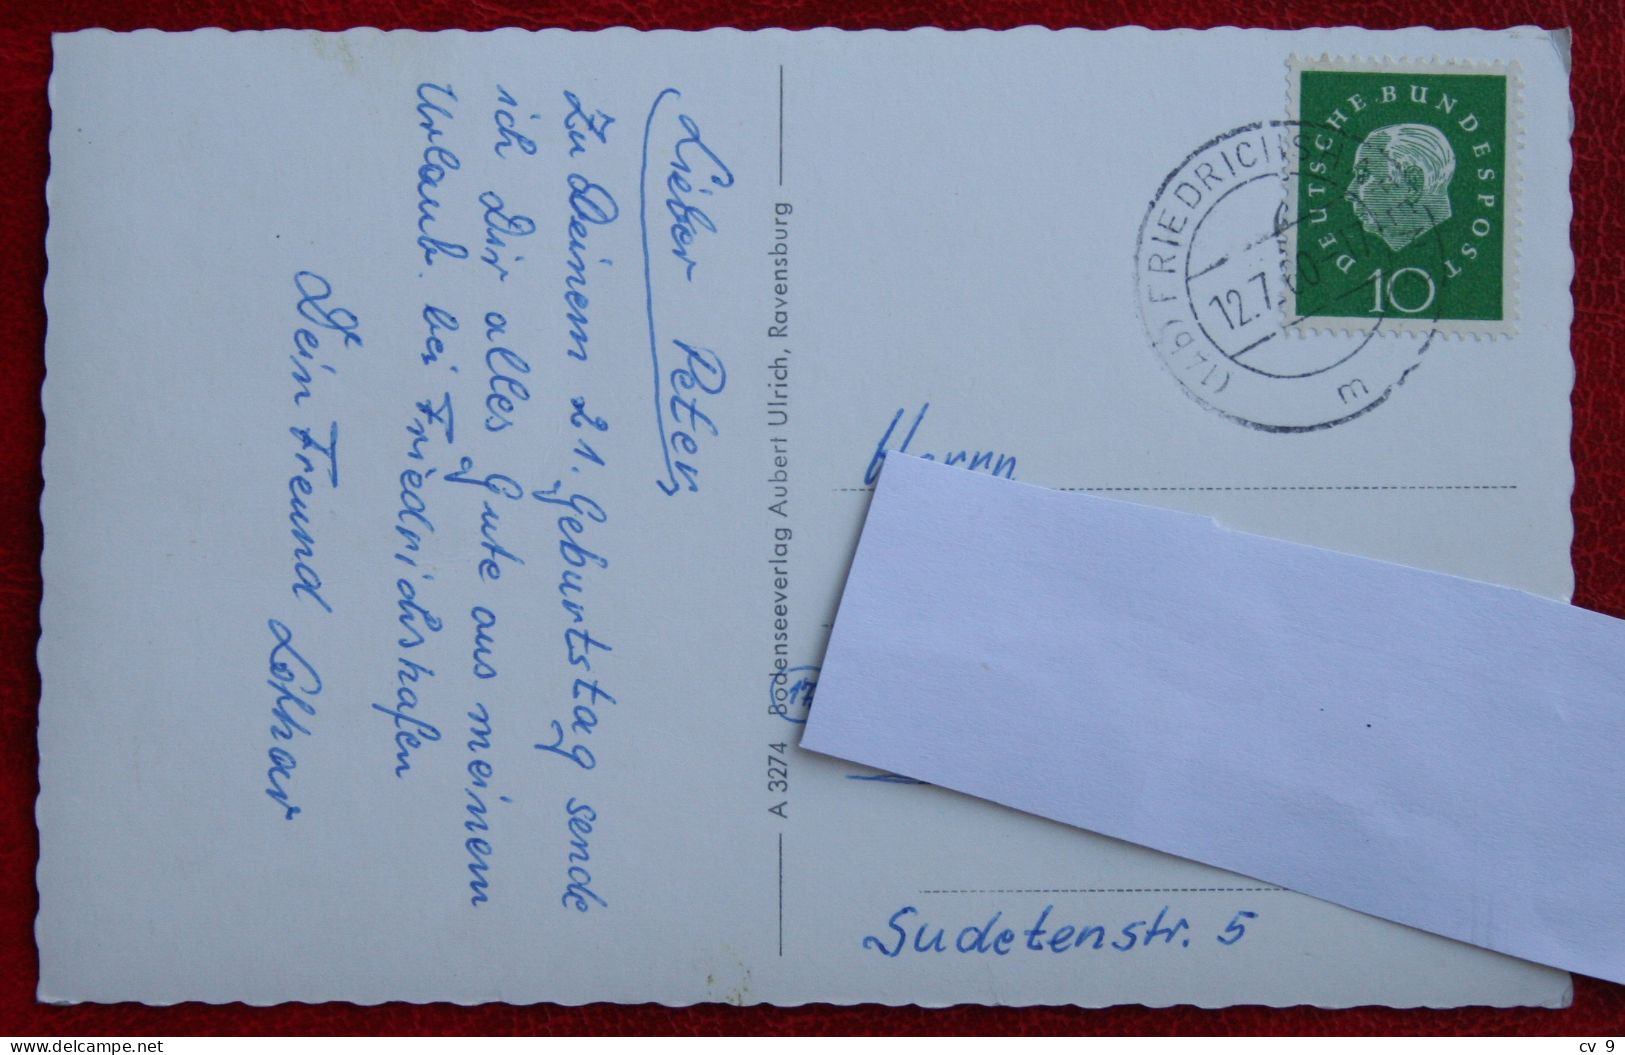 Lieber Peter,
Zu Deinem 21. Geburtstag sende
ich Dir alles Gute aus meinem
Urlaub. bei Friedrichshafen
Dein Freund Lothar
A 3274 Bodenseeverlag Aubert Ulrich, Ravensburg
DEUTSCHE BUNDESPOST
10
(14b) FRIEDRICHS
12.7.60-17
m
Herrn
(17
Sudetenstr. 5
cv 9